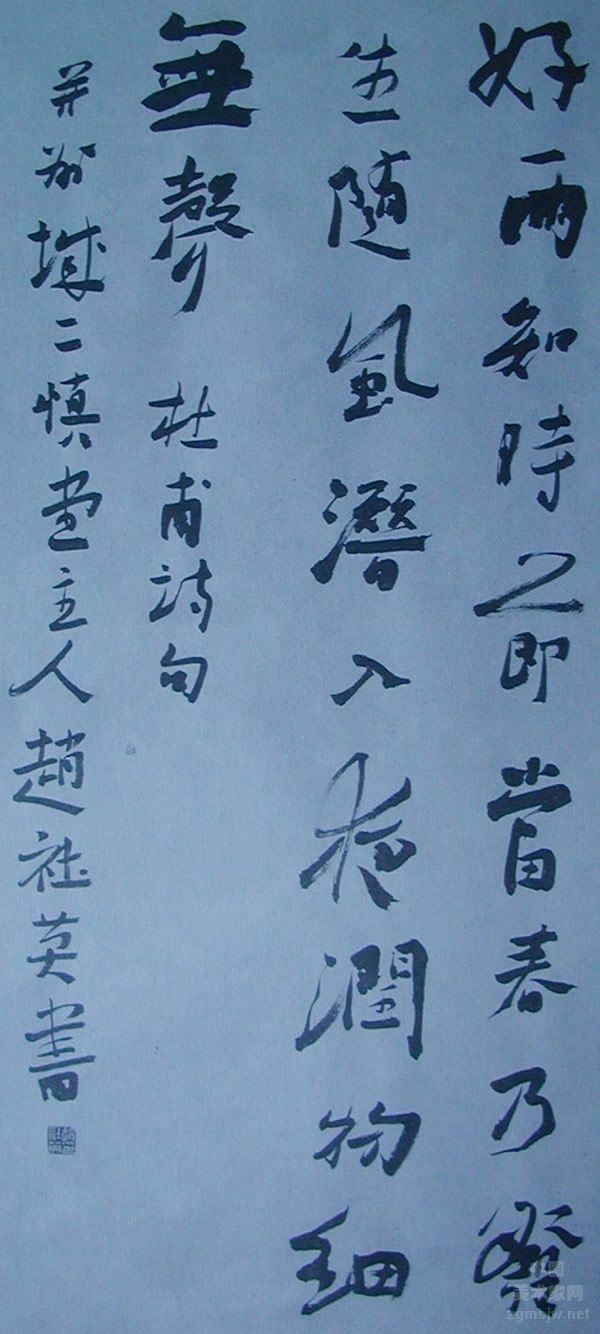 好雨知時節當春乃發
生隨風潛入夜潤物細
無聲 杜甫詩句
并州城二慎堂主人趙社英書
中国
美术家网
zgmsjw.net